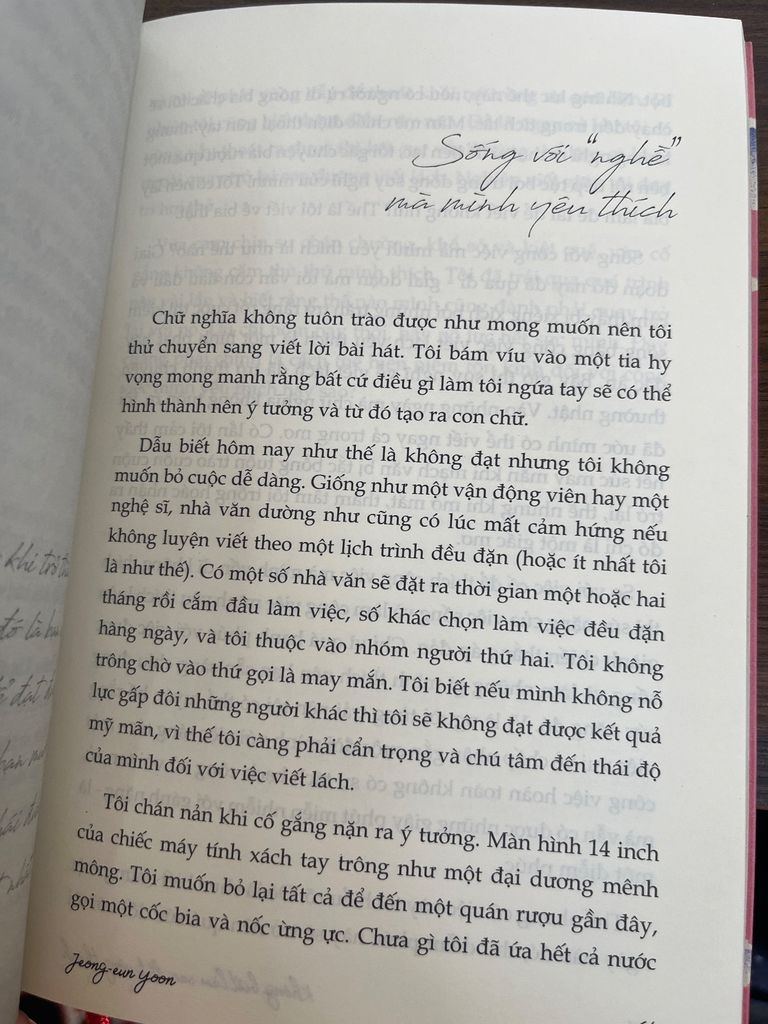 Sống với "nghề"
mà mình yêu thích
Chữ nghĩa không tuôn trào được như mong muốn nên tôi
thử chuyển sang viết lời bài hát. Tôi bám víu vào một tia hy
vọng mong manh rằng bất cứ điều gì làm tôi ngứa tay sẽ có thể
hình thành nên ý tưởng và từ đó tạo ra con chữ.
Dẫu biết hôm nay như thế là không đạt nhưng tôi không
muốn bỏ cuộc dễ dàng. Giống như một vận động viên hay một
nghệ sĩ, nhà văn dường như cũng có lúc mất cảm hứng nếu
không luyện viết theo một lịch trình đều đặn (hoặc ít nhất tôi
là như thế). Có một số nhà văn sẽ đặt ra thời gian một hoặc hai
tháng rồi cắm đầu làm việc, số khác chọn làm việc đều đặn
hàng ngày, và tôi thuộc vào nhóm người thứ hai. Tôi không
trông chờ vào thứ gọi là may mắn. Tôi biết nếu mình không nỗ
lực gấp đôi những người khác thì tôi sẽ không đạt được kết quả
mỹ mãn, vì thế tôi càng phải cẩn trọng và chú tâm đến thái độ
của mình đối với việc viết lách.
Tôi chán nản khi cố gắng nặn ra ý tưởng. Màn hình 14 inch
của chiếc máy tính xách tay trông như một đại dương mênh
mông. Tôi muốn bỏ lại tất cả để đến một quán rượu gần đây,
gọi một cốc bia và nốc ừng ực. Chưa gì tôi đã ứa hết cả nước
Jeong-eun Yoon